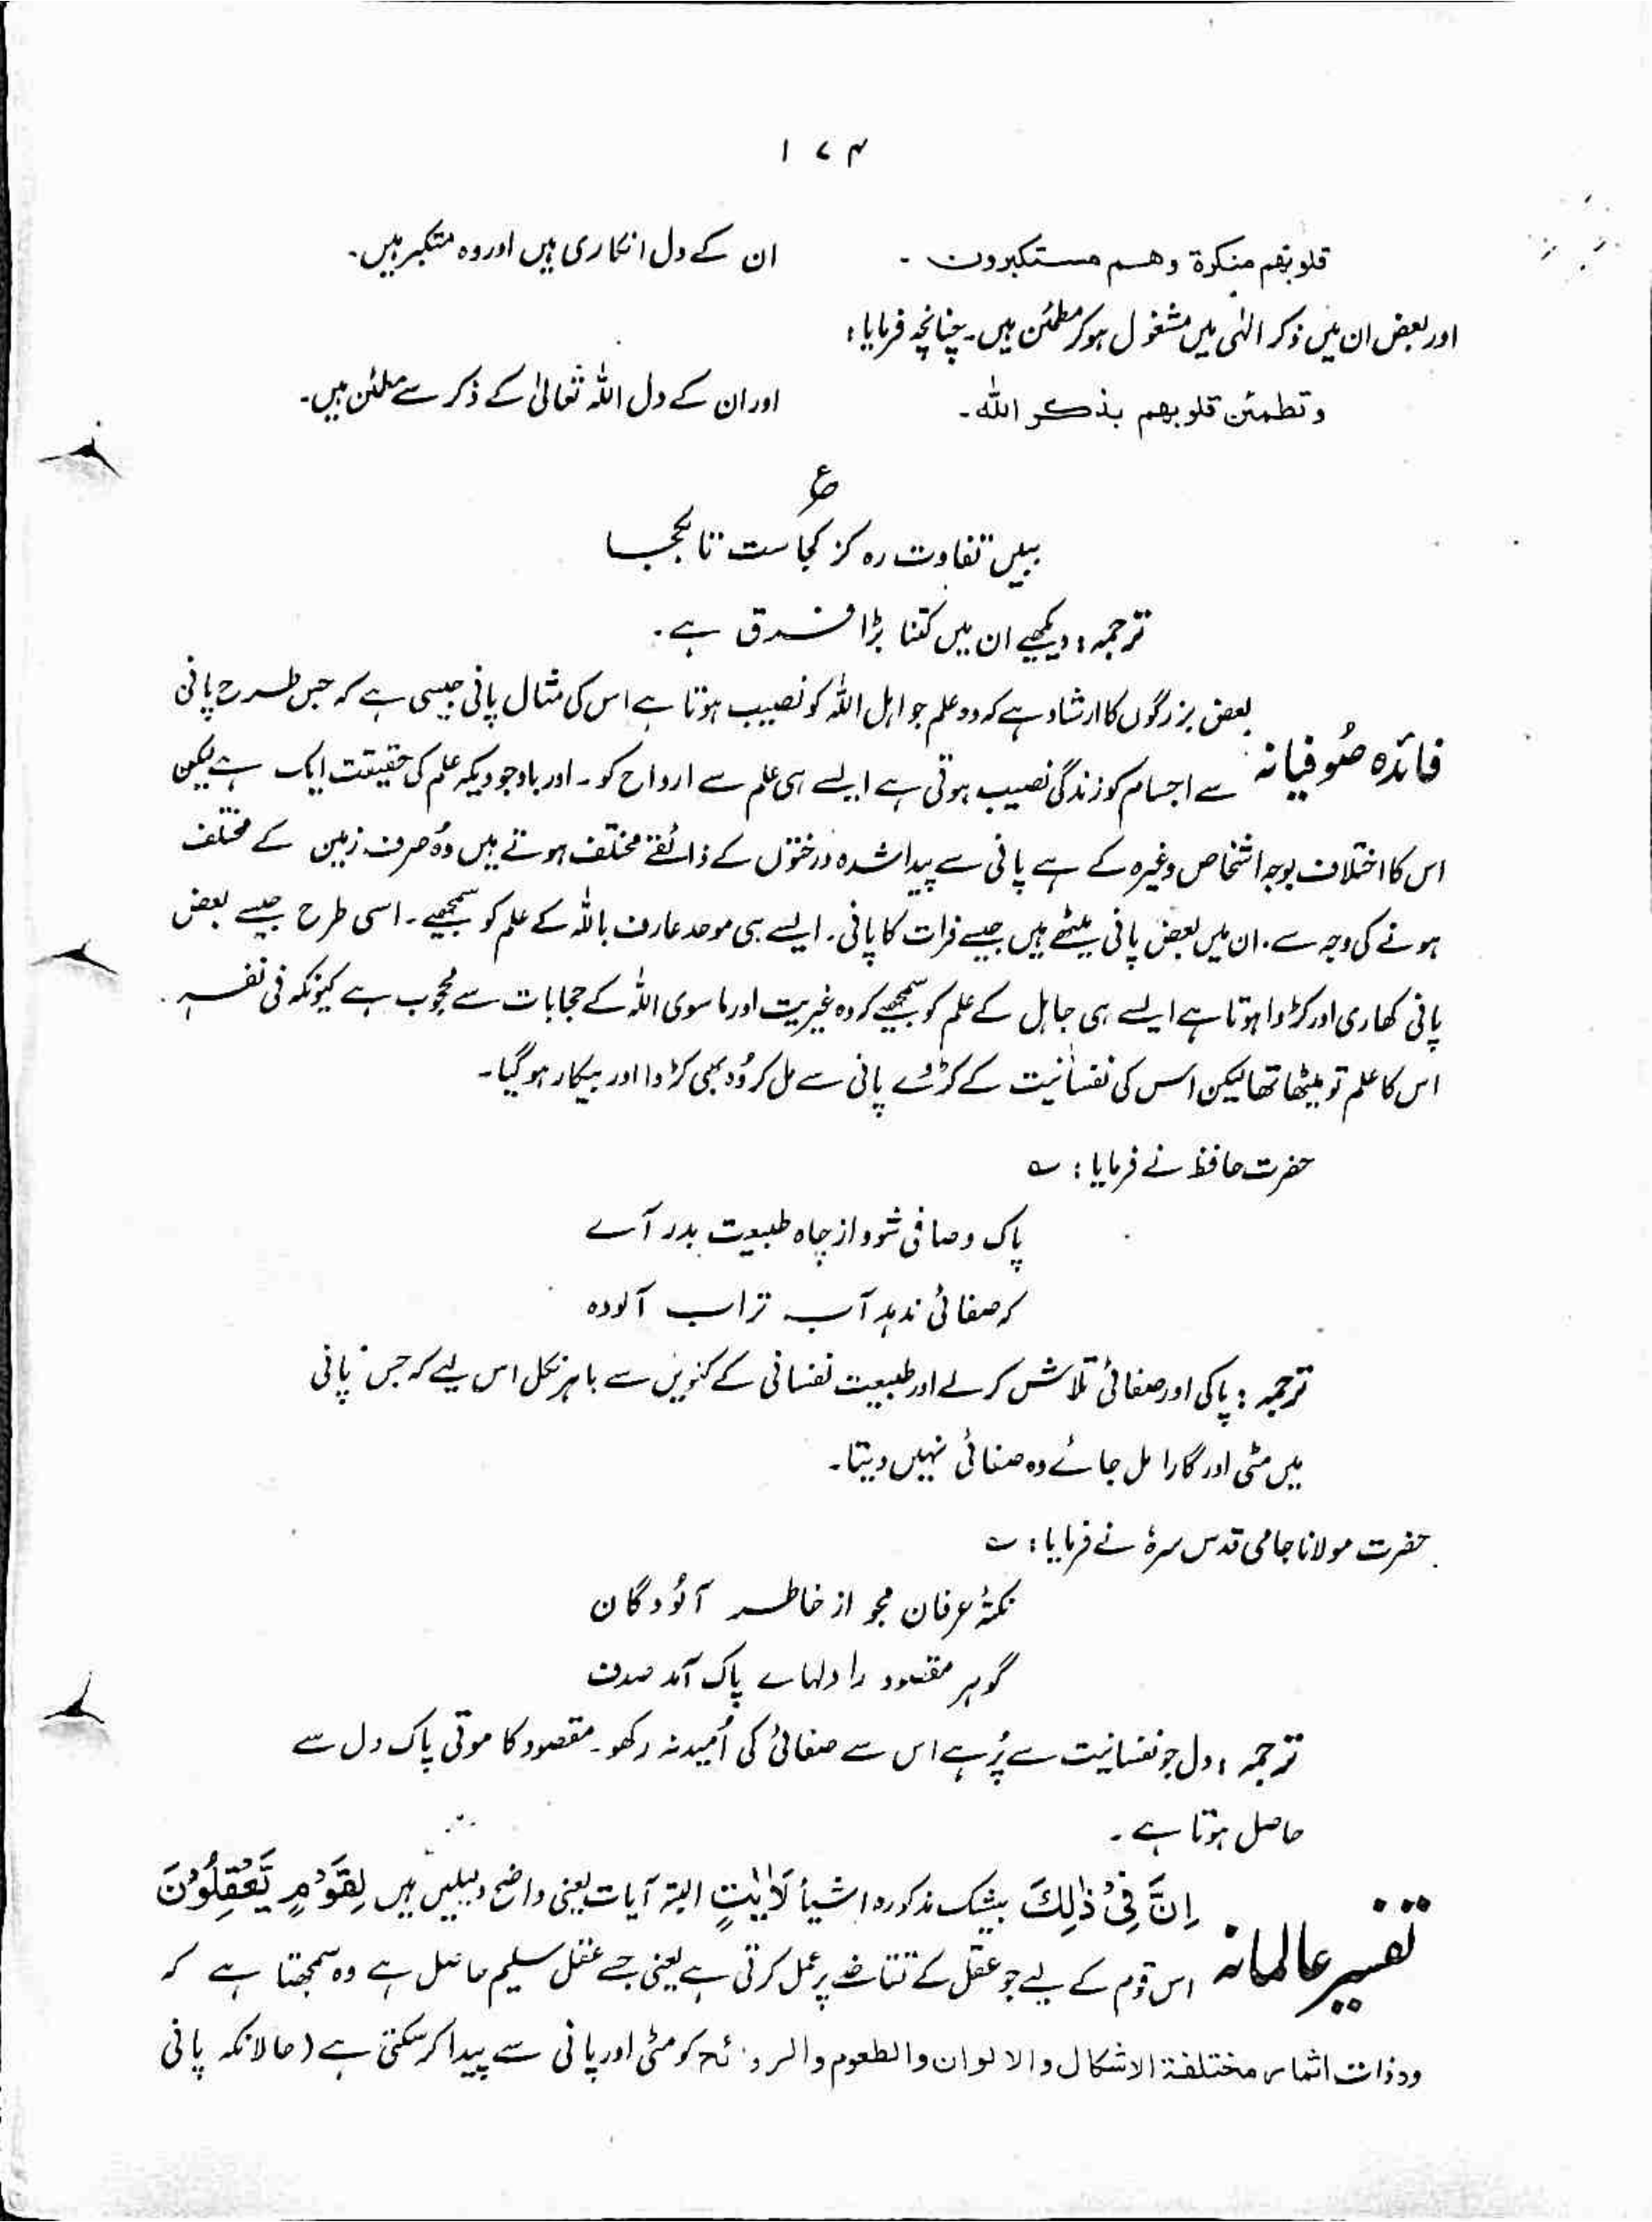 ۱۷۴
قلوبھم منکرة وھم مستکبرون ۔ ان کے دل انکاری ہیں اور وہ متکبر ہیں۔
اور بعض ان میں ذکر الٰہی میں مشغول ہو کر مطمئن ہیں۔ چنانچہ فرمایا:
وتطمئن قلوبھم بذکر اللہ۔ اور ان کے دل اللہ تعالیٰ کے ذکر سے مطمئن ہیں۔
ع
ببیں تفاوت رہ کز کجاست تا بکجا
ترجمہ: دیکھیے ان میں کتنا بڑا فرق ہے۔
بعض بزرگوں کا ارشاد ہے کہ وہ علم جو اہل اللہ کو نصیب ہوتا ہے اس کی مثال پانی جیسی ہے کہ جس طرح پانی
فائدہ صُوفیانہ سے اجسام کو زندگی نصیب ہوتی ہے ایسے ہی علم سے ارواح کو۔ اور باوجودیکہ علم کی حقیقت ایک ہے لیکن
اس کا اختلاف بوجہ اشخاص وغیرہ کے ہے پانی سے پیدا شدہ درختوں کے ذائقے مختلف ہوتے ہیں وُہ صرف زمین کے مختلف
ہونے کی وجہ سے۔ ان میں بعض پانی میٹھے ہیں جیسے فرات کا پانی۔ ایسے ہی موحد عارف باللہ کے علم کو سمجھیے۔ اسی طرح جیسے بعض
پانی کھاری اور کڑوا ہوتا ہے ایسے ہی جاہل کے علم کو سمجھیے کہ وہ غیریت اور ماسوی اللہ کے حجابات سے محجوب ہے کیونکہ فی نفسہٖ
اس کا علم تو میٹھا تھا لیکن اس کی نفسانیت کے کڑوے پانی سے مل کر وُہ بھی کڑوا اور بیکار ہو گیا۔
حضرت حافظ نے فرمایا: ؎
پاک و صافی شو و از چاہ طبیعت بدر آے
کہ صفائی ندہد آب تراب آلودہ
ترجمہ: پاکی اور صفائی تلاش کر لے اور طبیعت نفسانی کے کنویں سے باہر نکل اس لیے کہ جس پانی
میں مٹی اور گارا مل جائے وہ صفائی نہیں دیتا۔
حضرت مولانا جامی قدس سرہٗ نے فرمایا: ؎
نکتۂ عرفان مجو از خاطر آلودگان
گوہر مقصود را دلہاے پاک آمد صدف
ترجمہ: دل جو نفسانیت سے پُر ہے اس سے صفائی کی اُمید نہ رکھو۔ مقصود کا موتی پاک دل سے
حاصل ہوتا ہے۔
تفسیر عالمانہ اِنَّ فِیْ ذٰلِكَ بیشک مذکورہ اشیأ لَاٰیٰتٍ البتہ آیات یعنی واضح دلیلیں ہیں لِقَوْمٍ یَّعْقِلُوْنَ
اس قوم کے لیے جو عقل کے تقاضے پر عمل کرتی ہے یعنی جسے عقل سلیم حاصل ہے وہ سمجھتا ہے کہ
وہ ذات اثمار مختلفة الاشکال والالوان والطعوم والروائح کو مٹی اور پانی سے پیدا کر سکتی ہے (حالانکہ پانی